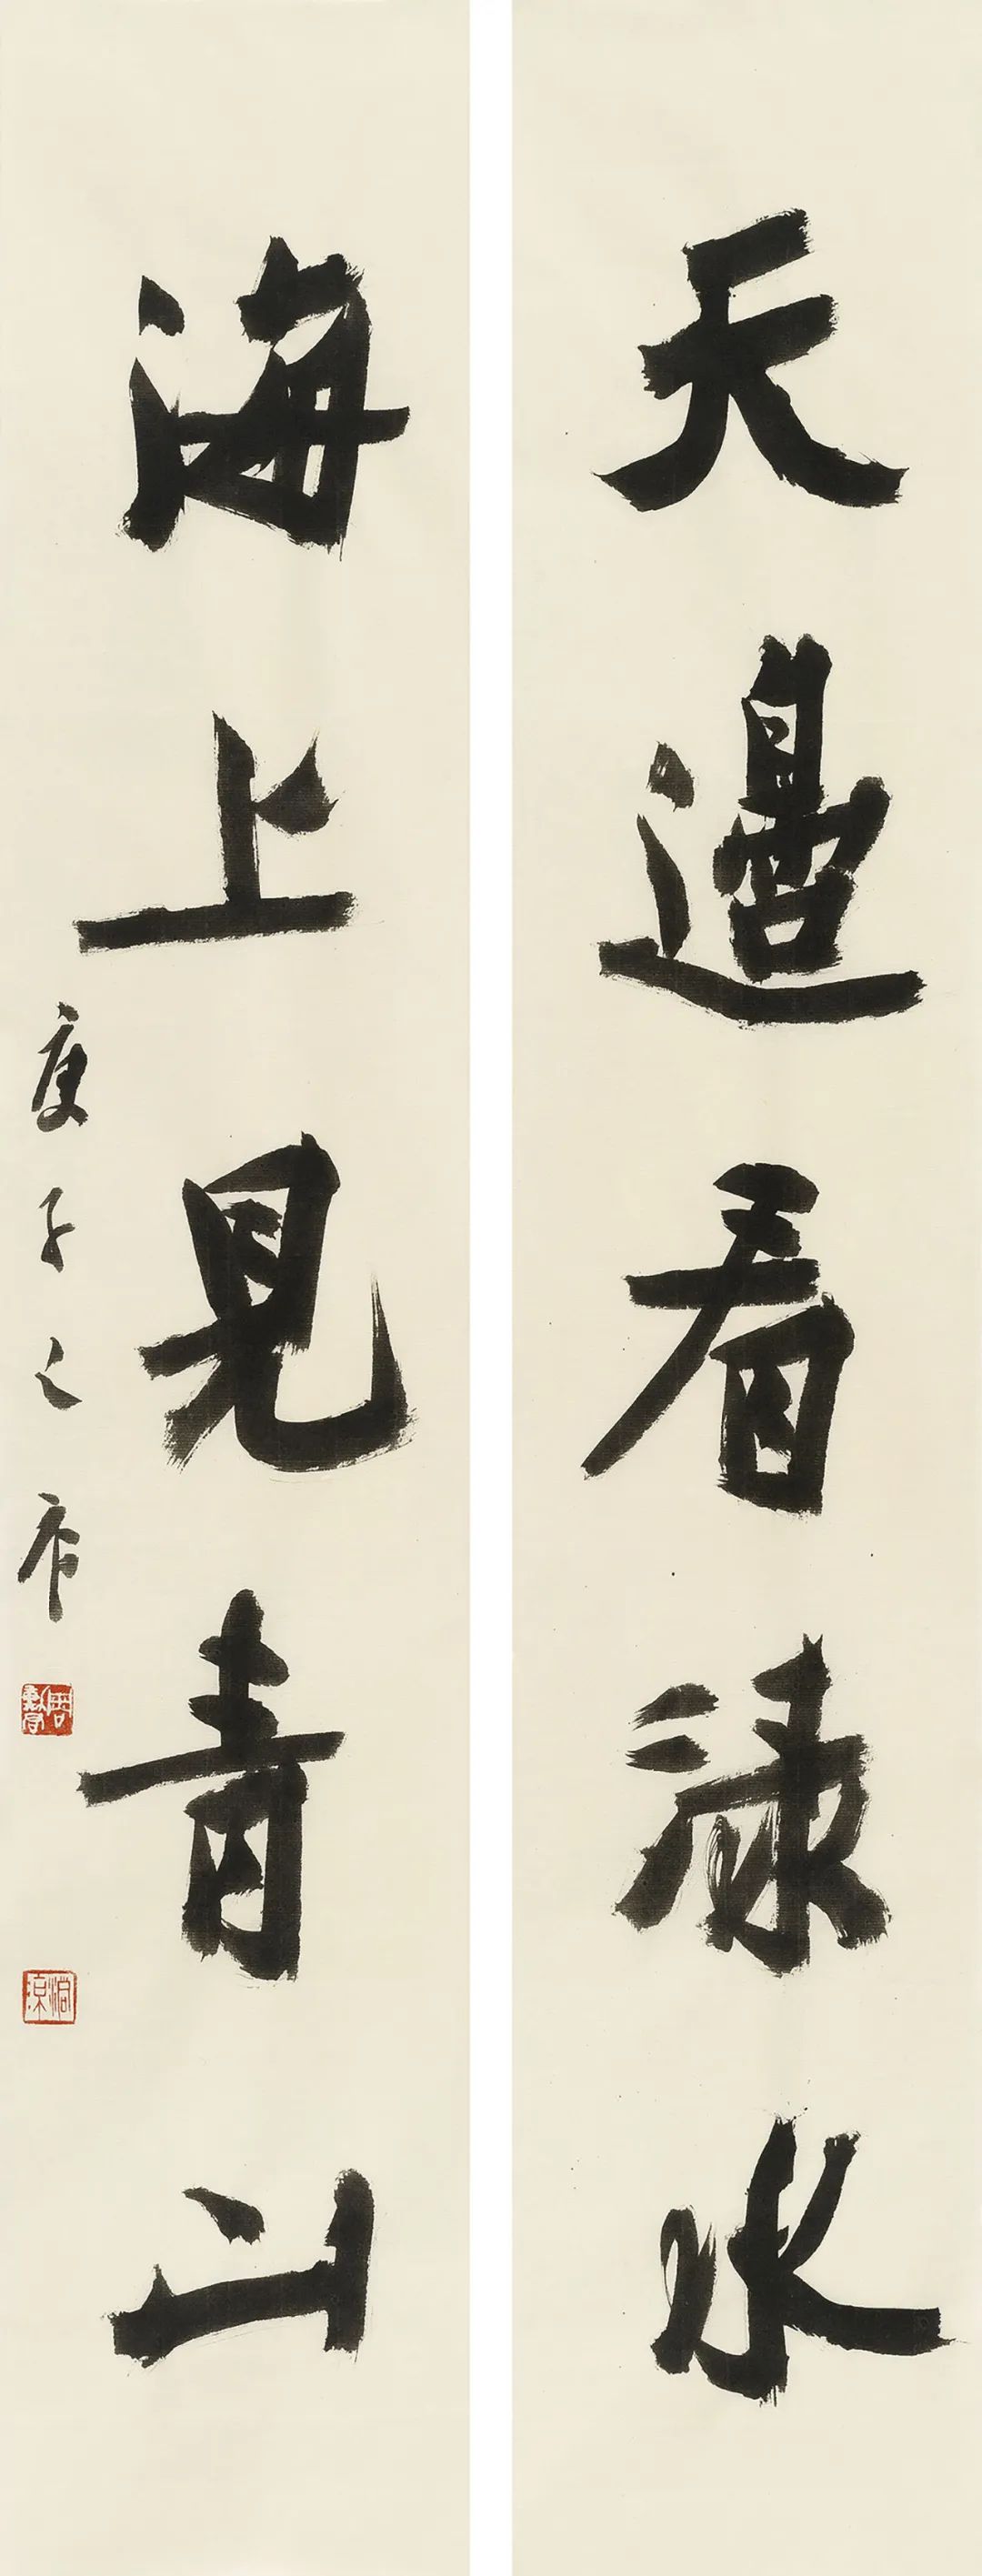 天邊看渌水
海上見青山
庚子之